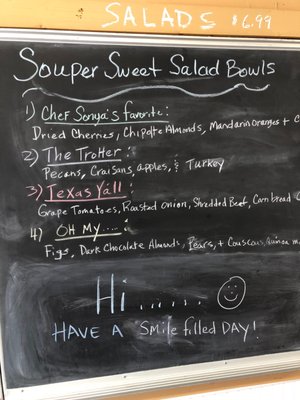 SALADS $6.99
Souper Sweet Salad Bowls
1) Chef Sonya's favorite:
Dried Cherries, Chipotle Almonds, Mandarin Oranges + C
2) The Trotter:
Pecans, Craisans, apples, & Turkey
3) Texas Yáll:
Grape Tomatoes, Roasted Onion, Shredded Beef, Cornbread C
4) OH My....:
Figs, Dark Chocolate Almonds, Pears, + Couscous, Quinoa m
Hi......
HAVE A Smile filled DAY!